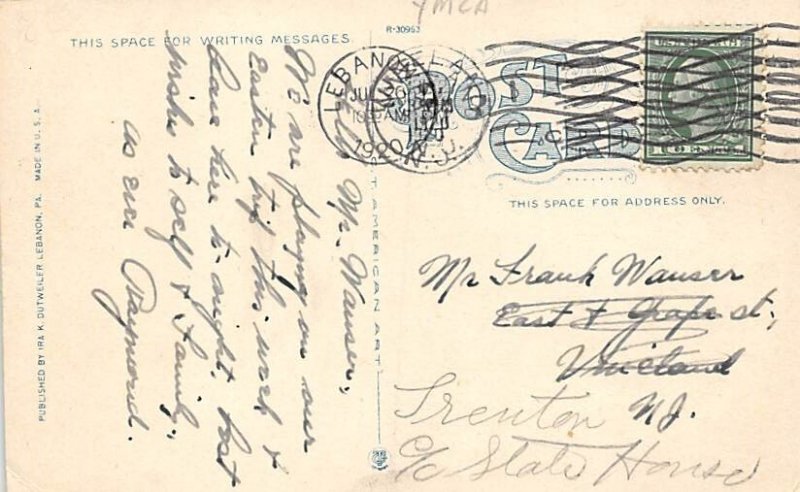 YMCA
R-30953
THIS SPACE FOR WRITING MESSAGES.
POST
CARD
THIS SPACE FOR ADDRESS ONLY.
LEBANON
1920
N.J.
Hello Mr. Wauser,
We are playing on our
Eastern trip this week &
have here to-night. Best
wishes to self & Family.
as ever Raymond.
Mr Frank Wauser
East & Grape st,
Vineland
N.J.
Trenton
c/o State House
PUBLISHED BY IRA K. DUTWEILER, LEBANON, PA. MADE IN U.S.A.
AMERICAN ART